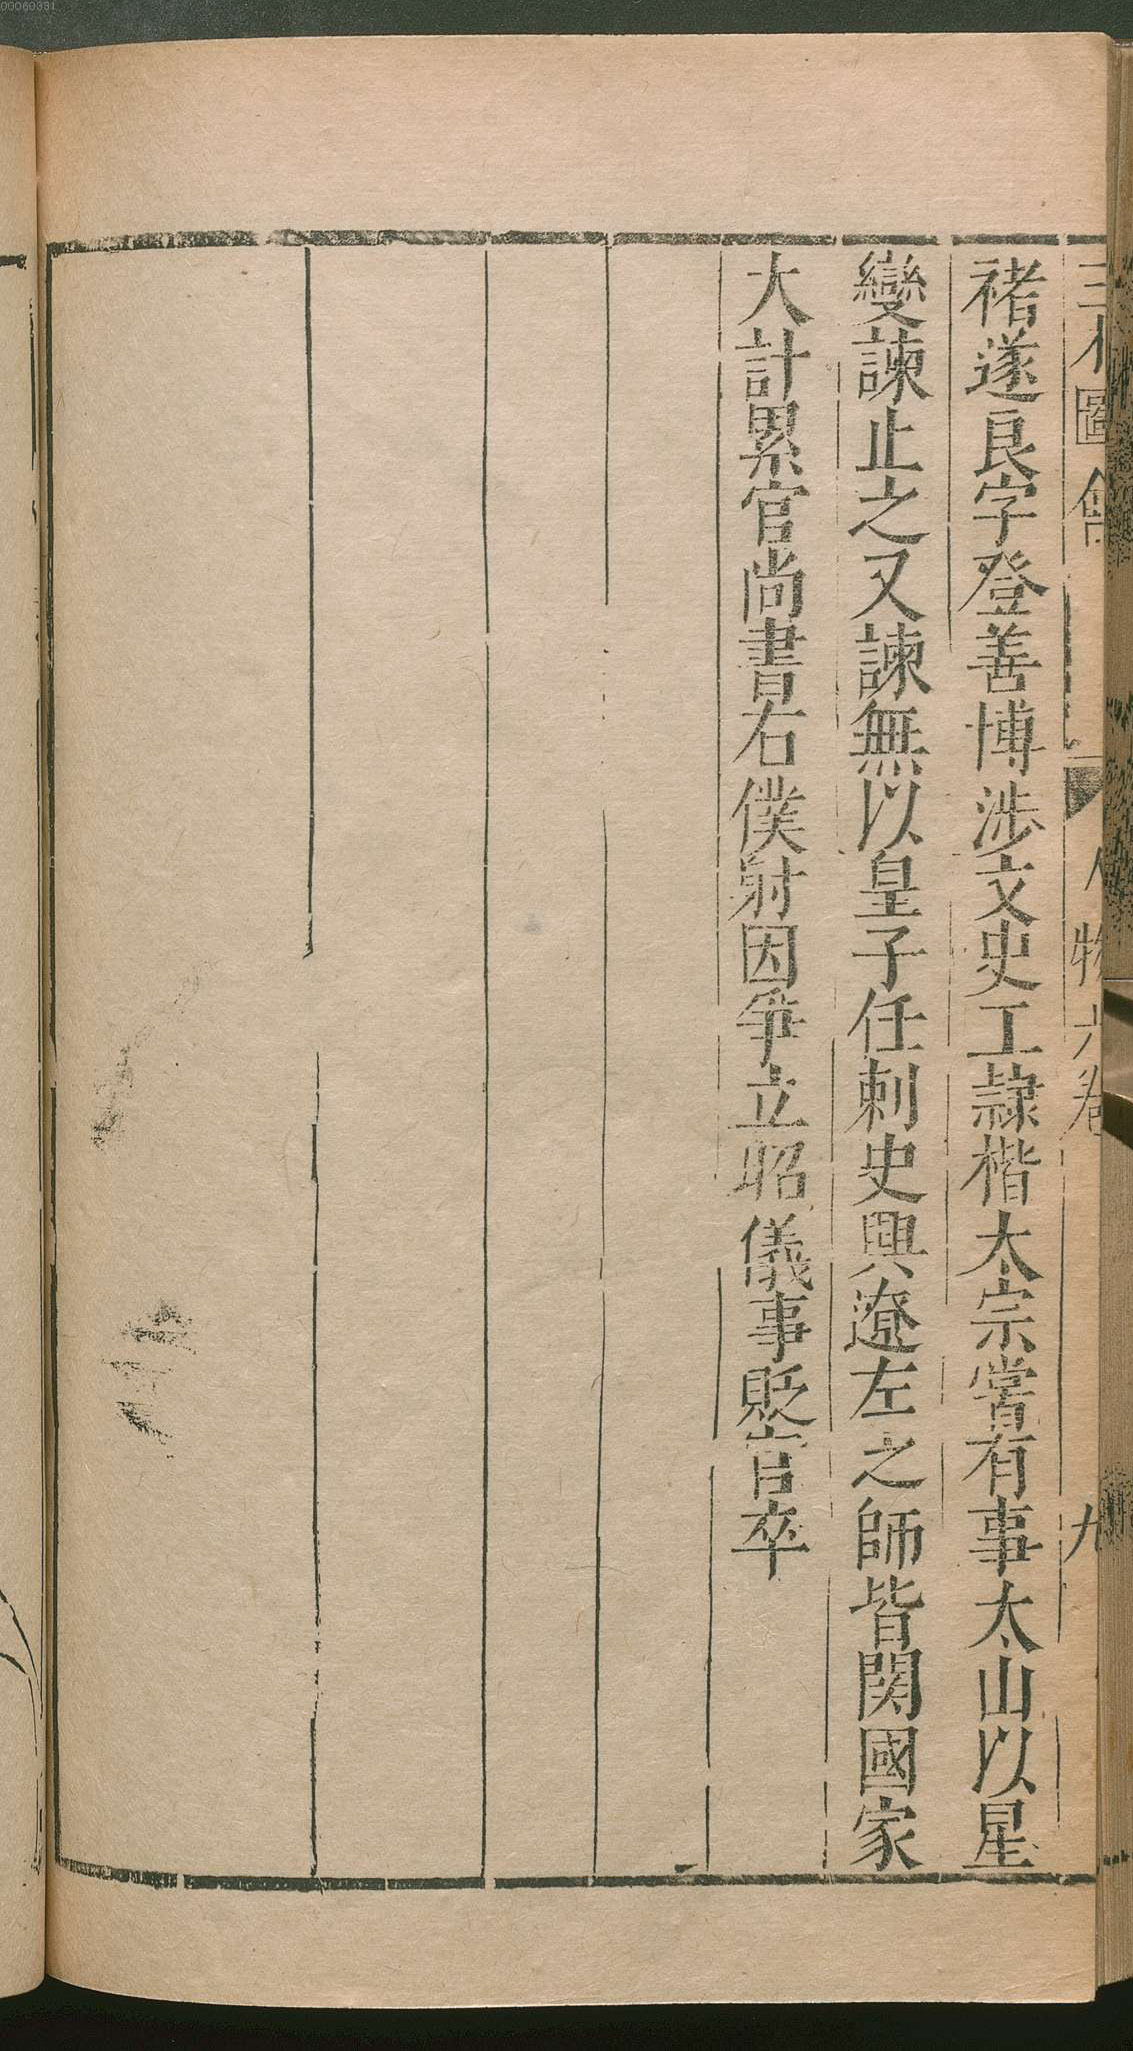 三才圖會 人物六卷 九
褚遂良字登善博涉文史工隷楷太宗嘗有事太山以星
變諫止之又諫無以皇子任刺史興遼左之師皆関國家
大計累官尚書右僕射因爭立昭儀事貶官卒
00060331